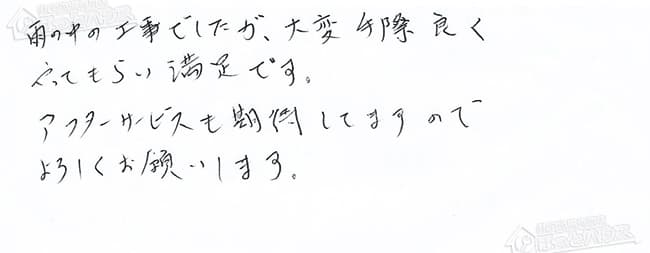 雨の中の工事でしたが、大変手際良く
やってもらい満足です。
アフターサービスも期待してますので
よろしくお願いします。